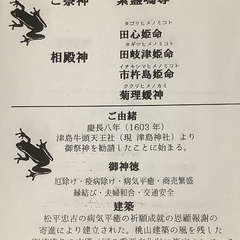 ご祭神
相殿神
タゴリヒメノミコト
田心姫命
タギツヒメノミコト
田岐津姫命
イチキシマヒメノミコト
市杵島姫命
ククリヒメノカミ
菊理媛神
ご由緒
慶長八年(1603年)
津島牛頭天王社(現 津島神社)より
御祭神を勧請したことに始まる。
御神徳
厄除け・疫病除け・病気平癒・商売繁盛
縁結び・夫婦和合・交通安全
建築
松平忠吉の病気平癒の祈願成就の恩顧報謝の
寄進により建立された。桃山建築の風を残した